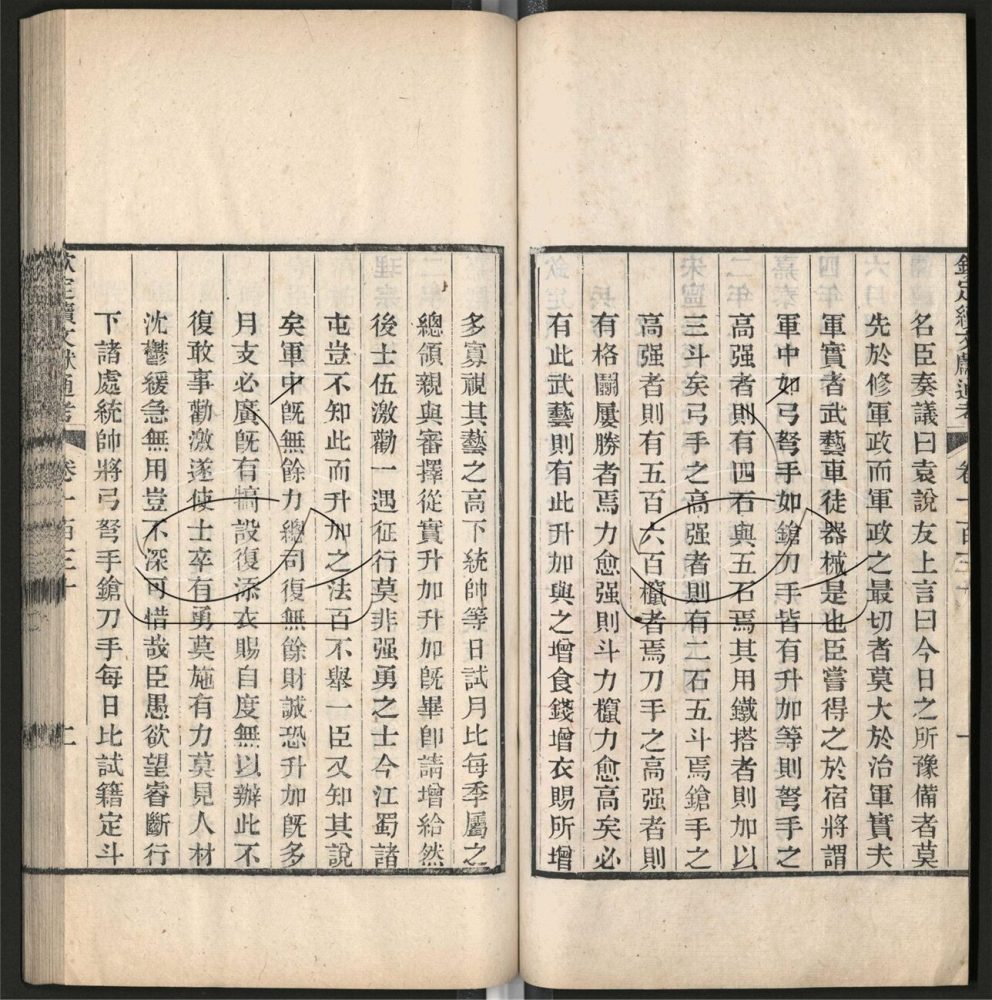 欽定續文獻通考 卷一百三十 一
名臣奏議曰袁說友上言曰今日之所豫備者莫
先於修軍政而軍政之最切者莫大於治軍實夫
軍實者武藝車徒器械是也臣嘗得之於宿將謂
軍中如弓弩手如鎗刀手皆有升加等則弩手之
高强者則有四石與五石焉其用鐵搭者則加以
三斗矣弓手之高强者則有二石五斗焉鎗手之
高强者則有五百六百𣠽者焉刀手之高强者則
有格鬭屢勝者焉力愈强則斗力𣠽力愈高矣必
有此武藝則有此升加與之增食錢增衣賜所增
多寡視其藝之高下統帥等日試月比每季屬之
總領親與審擇從實升加升加旣畢卽請增給然
後士伍激勸一遇征行莫非强勇之士今江蜀諸
屯豈不知此而升加之法百不舉一臣又知其說
矣軍中旣無餘力總司復無餘財誠恐升加旣多
月支必廣旣有犒設復添衣賜自度無以辦此不
復敢事勸激遂使士卒有勇莫施有力莫見人材
沈鬱緩急無用豈不深可惜哉臣愚欲望睿斷行
下諸處統帥將弓弩手鎗刀手每日比試籍定斗
欽定續文獻通考 卷一百三十 二